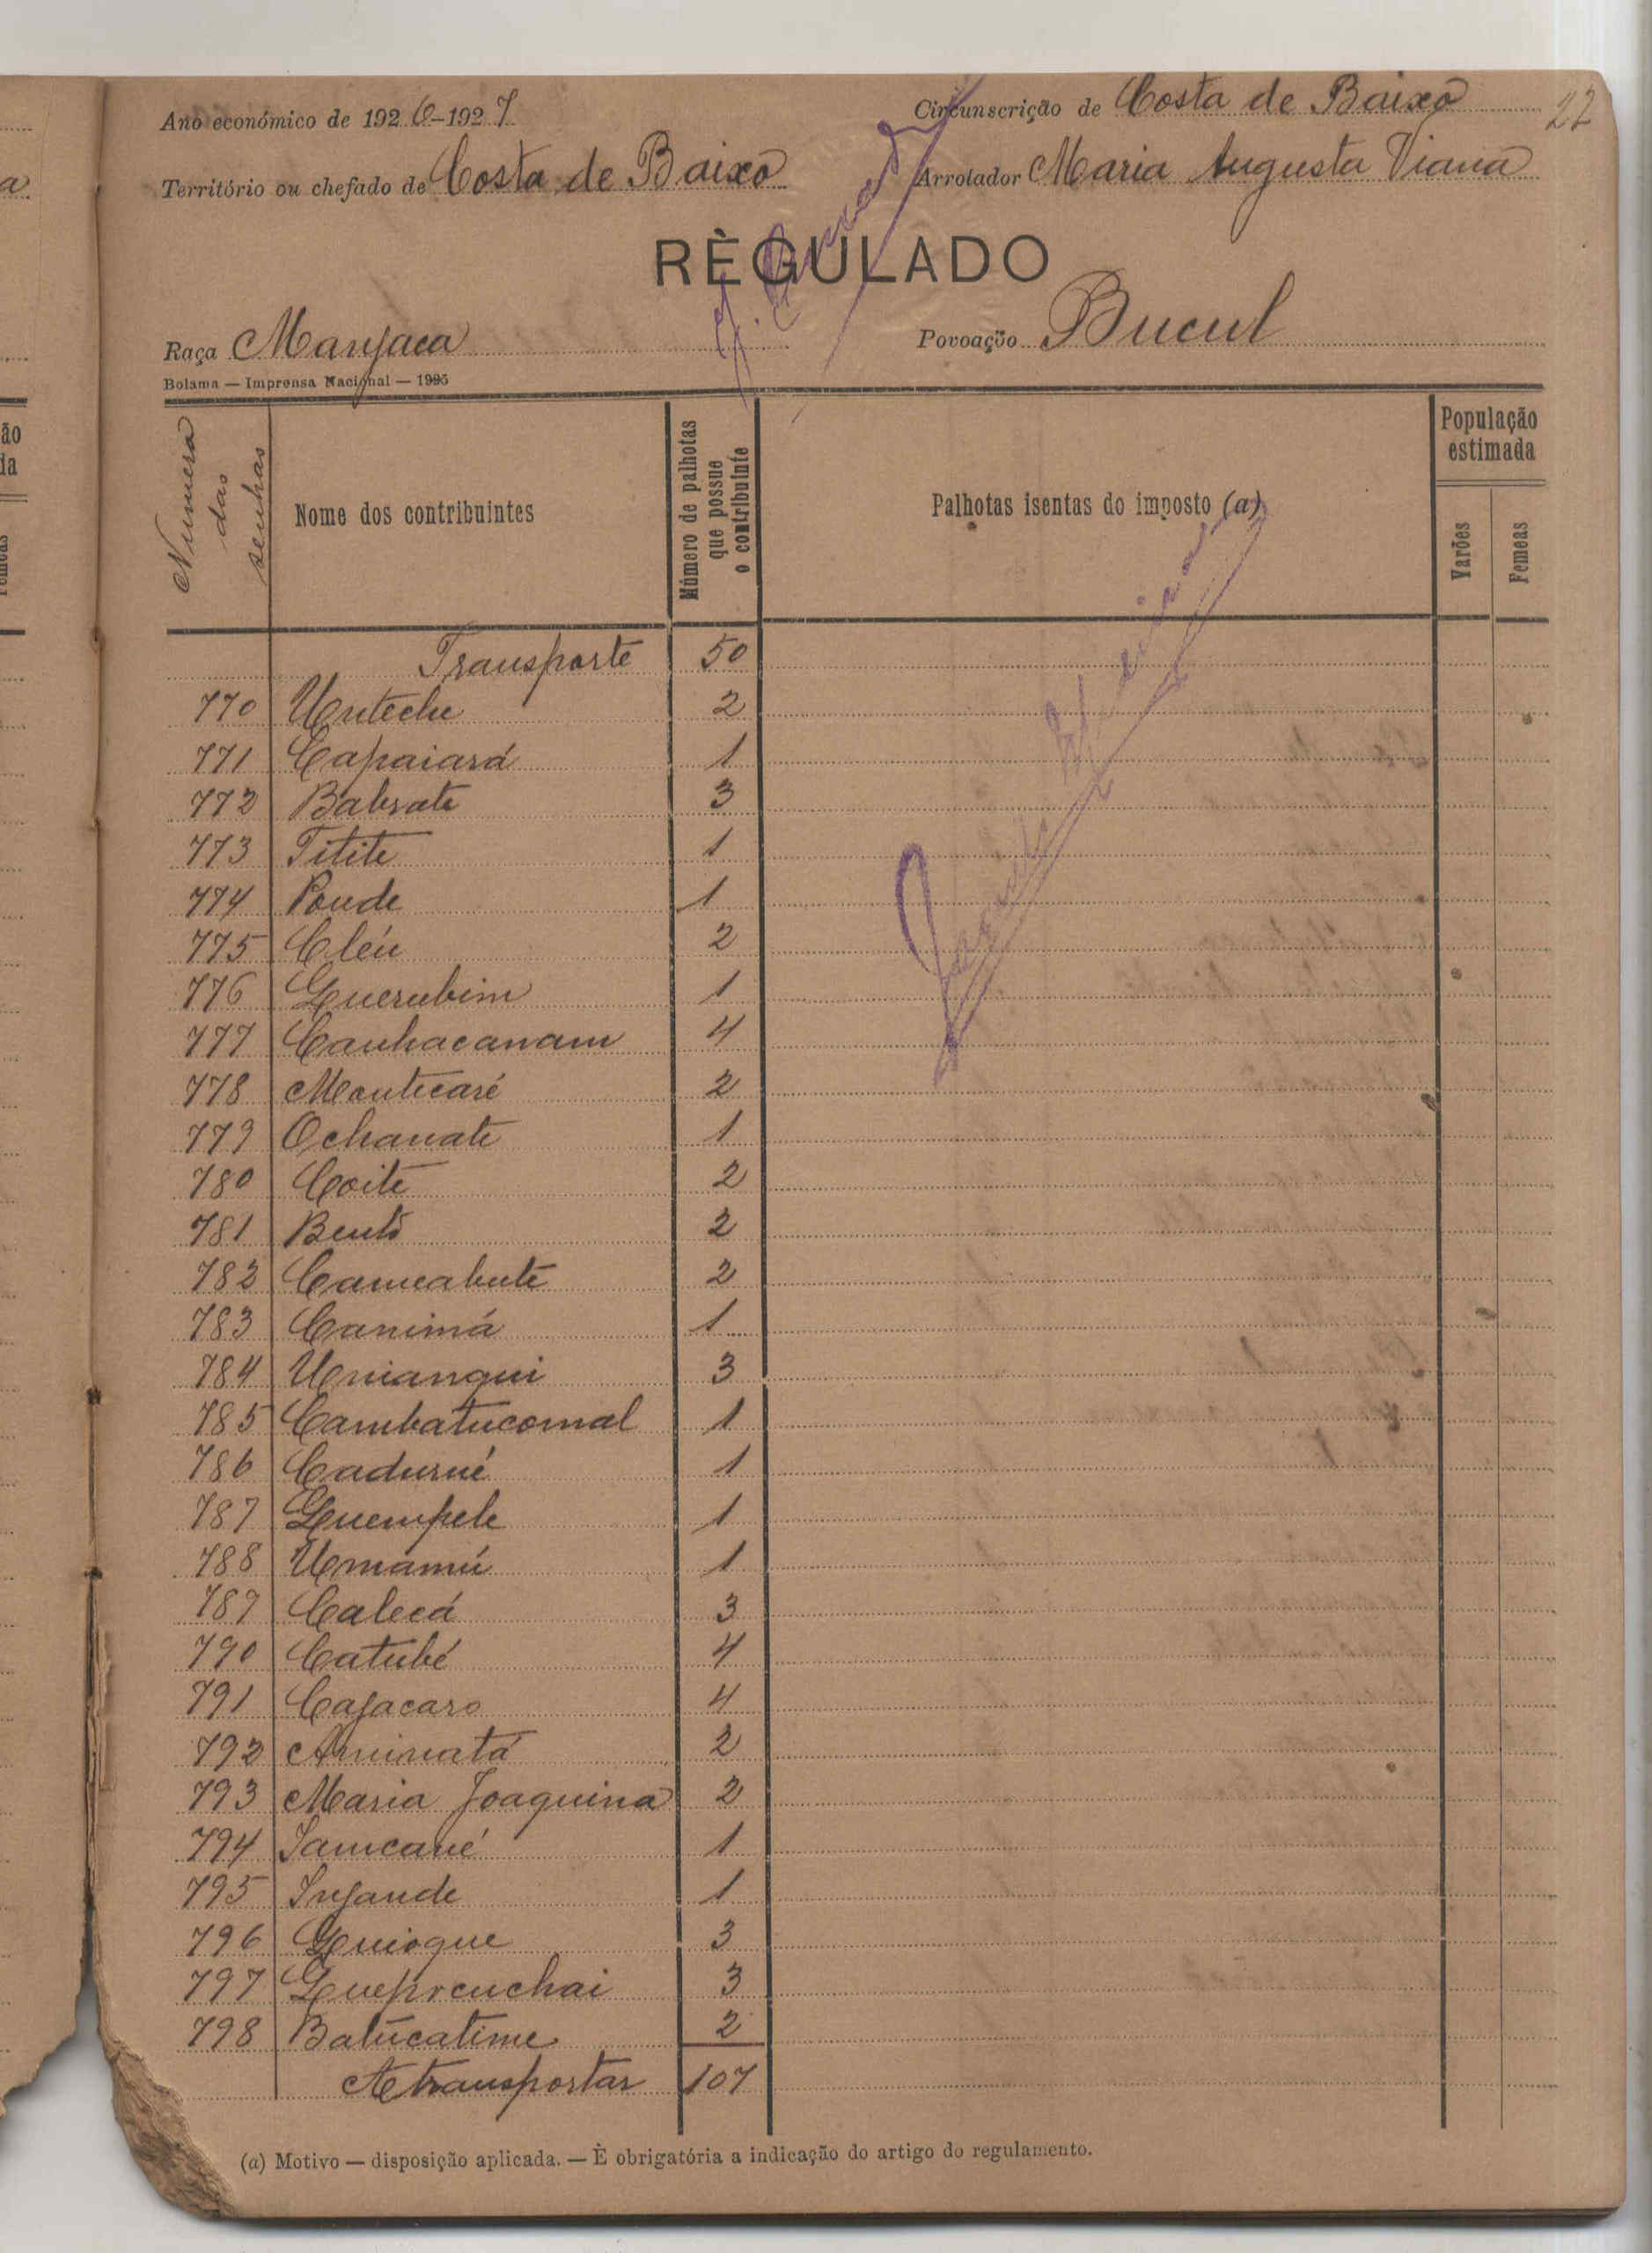 22
Ano económico de 1926-1927 Circunscrição de Costa de Baixo
Território ou chefado de Costa de Baixo Arrolador Maria Augusta Viana
RÈGULADO
Raça Manjaca Povoação Bucul
Bolama — Imprensa Nacional — 1925
Numera das senhas
Nome dos contribuintes
Número de palhotas que possue o contribuinte
Palhotas isentas do imposto (a)
População estimada
Varões
Femeas
Transporte 50
770 Unteche 2
771 Capaiará 1
772 Babrate 3
773 Titite 1
774 Poude 1
775 Cléu 2
776 Querubim 1
777 Canhacanam 4
778 Manticaré 2
779 Ochanate 1
780 Coite 2
781 Bentô 2
782 Cameabute 2
783 Canimá 1
784 Uniangui 3
785 Cambatucomal 1
786 Cadurué 1
787 Quempele 1
788 Umamú 1
789 Calecá 3
790 Catubé 4
791 Cajacaro 4
792 Aminatá 2
793 Maria Joaquina 2
794 Iamcané 1
795 Injande 1
796 Quioque 3
797 Queprenchai 3
798 Batúcatime 2
A transportar 107
(a) Motivo — disposição aplicada. — È obrigatória a indicação do artigo do regulamento.